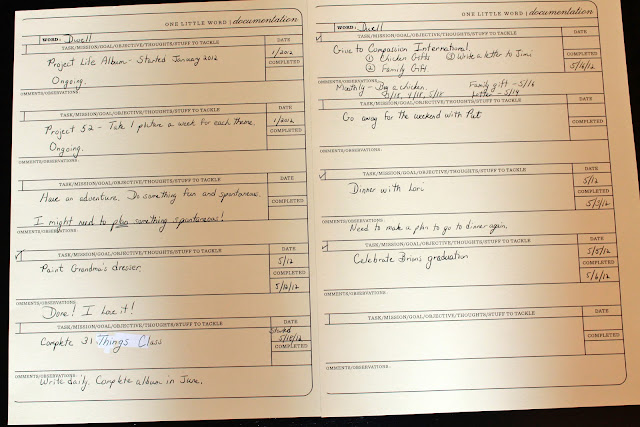 ONE LITTLE WORD | documentation
WORD: Dwell
TASK/MISSION/GOAL/OBJECTIVE/THOUGHTS/STUFF TO TACKLE DATE
Project Life Album - Started January 2012 1/2012
COMPLETED
Ongoing.
COMMENTS/OBSERVATIONS:
TASK/MISSION/GOAL/OBJECTIVE/THOUGHTS/STUFF TO TACKLE DATE
Project 52 - Take 1 picture a week for each theme. 1/2012
COMPLETED
Ongoing.
COMMENTS/OBSERVATIONS:
TASK/MISSION/GOAL/OBJECTIVE/THOUGHTS/STUFF TO TACKLE DATE
Have an adventure. Do something fun and spontaneous.
COMPLETED
I might need to plan something spontaneous!
OMMENTS/OBSERVATIONS:
TASK/MISSION/GOAL/OBJECTIVE/THOUGHTS/STUFF TO TACKLE DATE
Paint Grandma's dresser. 5/12
COMPLETED
5/12/12
OMMENTS/OBSERVATIONS:
Done! I Love it!
TASK/MISSION/GOAL/OBJECTIVE/THOUGHTS/STUFF TO TACKLE DATE
Started
Complete 31 Things Class 5/15/12
COMPLETED
OMMENTS/OBSERVATIONS:
Write daily. Complete album in June.
ONE LITTLE WORD | documentation
WORD: Dwell
TASK/MISSION/GOAL/OBJECTIVE/THOUGHTS/STUFF TO TACKLE DATE
Give to Compassion International.
① Chicken Gifts ③ Write a letter to Jimi
COMPLETED
② Family Gift. 5/16/12
COMMENTS/OBSERVATIONS:
Monthly - Buy a chicken. Family gift - 5/16
3/15, 4/15, 5/15 Letter - 5/14
TASK/MISSION/GOAL/OBJECTIVE/THOUGHTS/STUFF TO TACKLE DATE
Go away for the weekend with Pat
COMPLETED
COMMENTS/OBSERVATIONS:
TASK/MISSION/GOAL/OBJECTIVE/THOUGHTS/STUFF TO TACKLE DATE
Dinner with Lori 5/12
COMPLETED
COMMENTS/OBSERVATIONS:
Need to make a plan to go to dinner again.
TASK/MISSION/GOAL/OBJECTIVE/THOUGHTS/STUFF TO TACKLE DATE
Celebrate Brians graduation 5/5/12
COMPLETED
5/6/12
COMMENTS/OBSERVATIONS:
TASK/MISSION/GOAL/OBJECTIVE/THOUGHTS/STUFF TO TACKLE DATE
COMPLETED
COMMENTS/OBSERVATIONS: